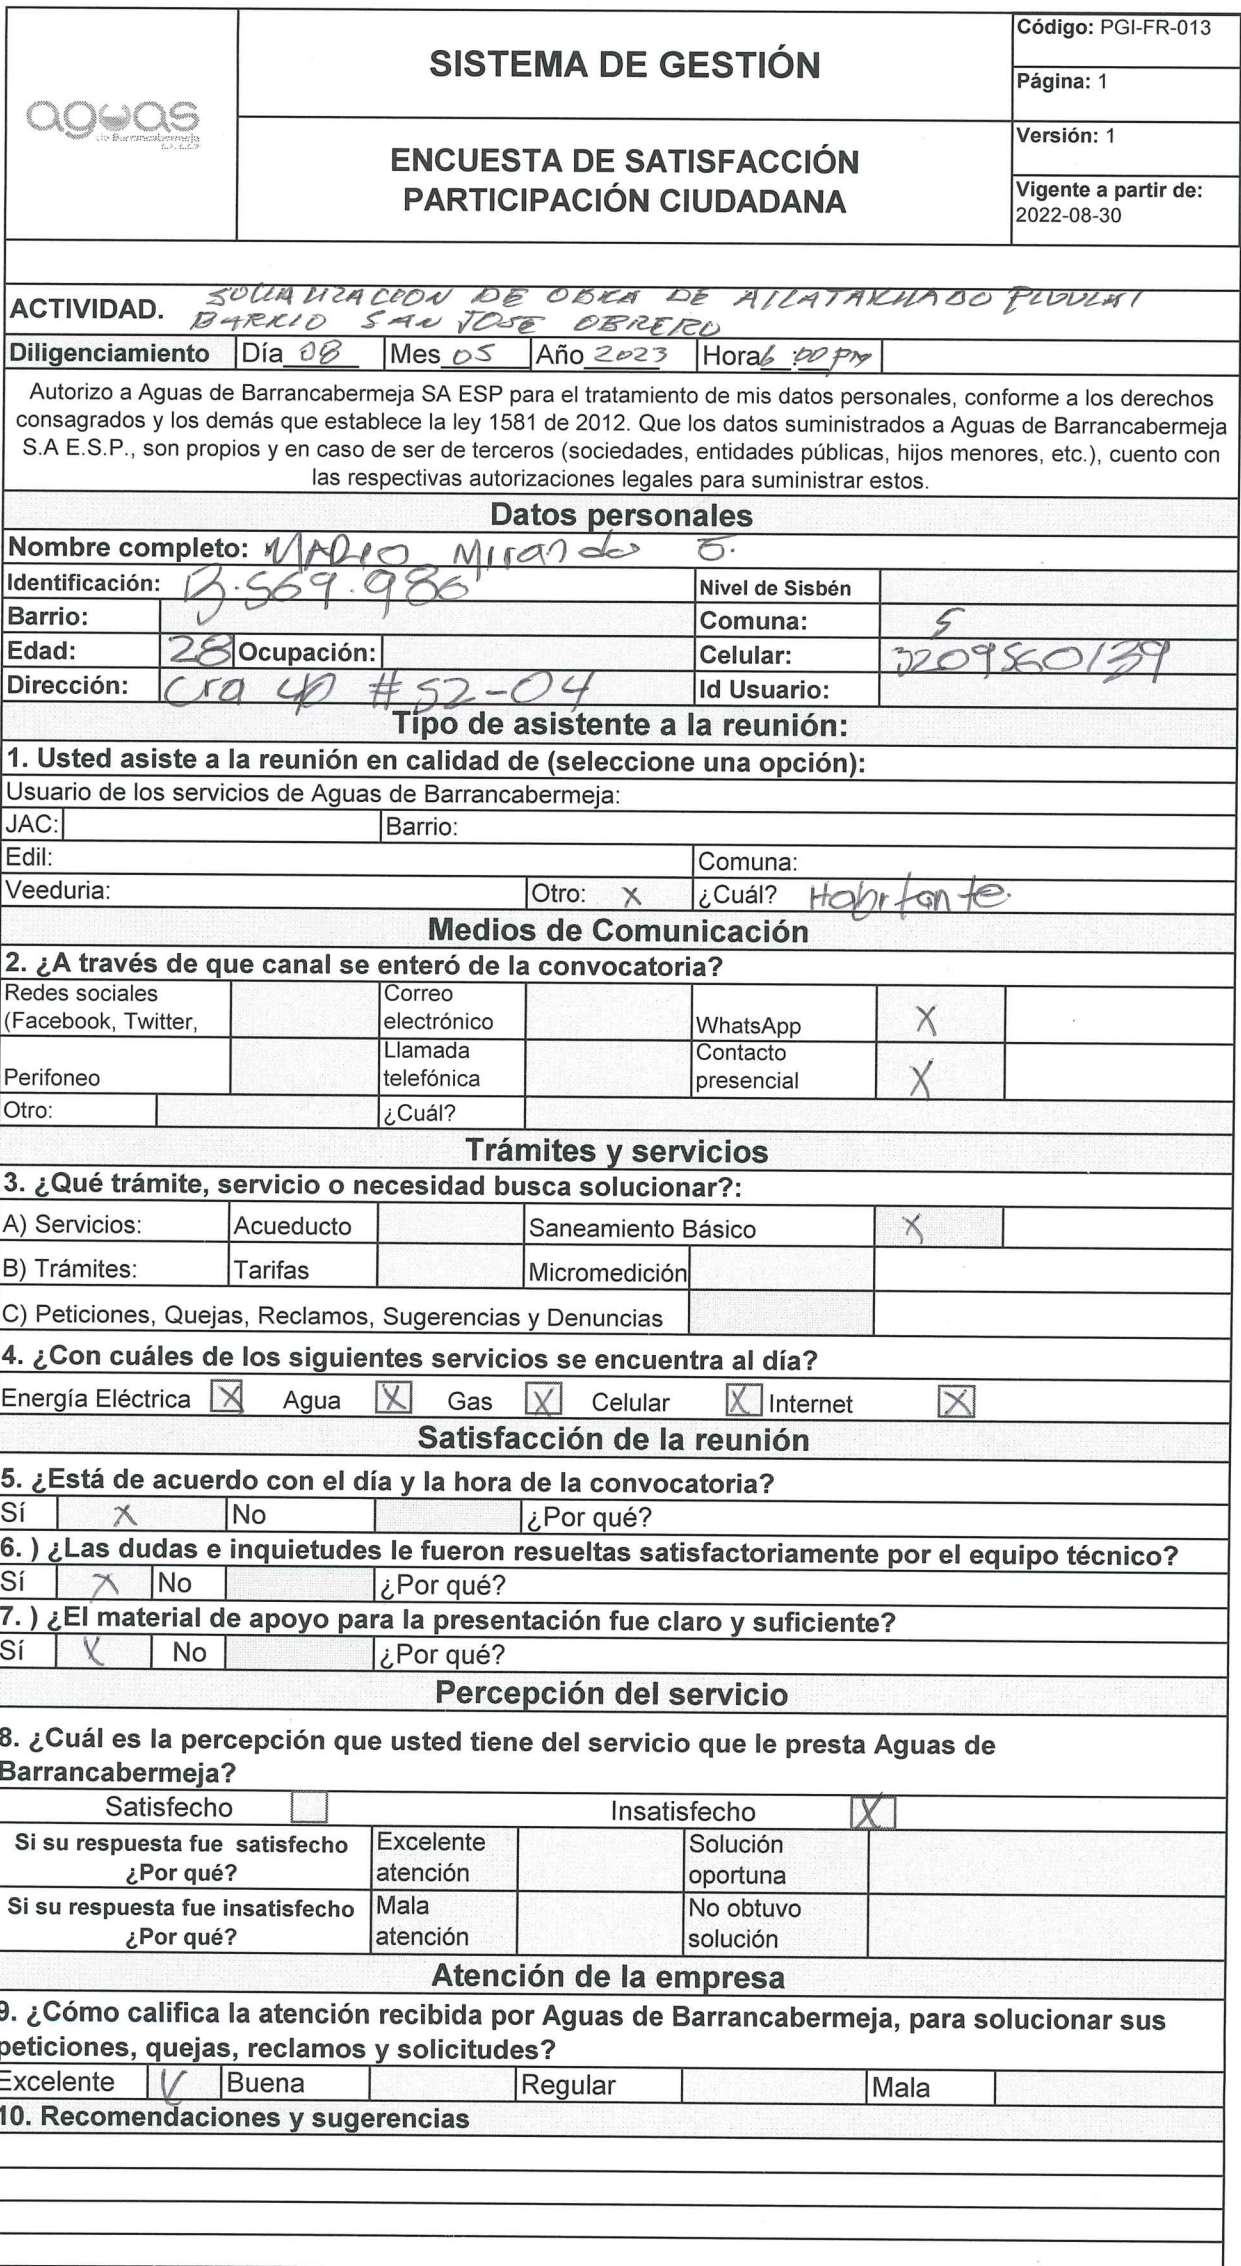 aguas
de Barrancabermeja
S.A. E.S.P
SISTEMA DE GESTIÓN
ENCUESTA DE SATISFACCIÓN
PARTICIPACIÓN CIUDADANA
Código: PGI-FR-013
Página: 1
Versión: 1
Vigente a partir de:
2022-08-30
ACTIVIDAD. SOCIALIZACION DE OBRA DE PLUVIAL
BARRIO SAN JOSE OBRERO
Diligenciamiento Día 08 Mes 05 Año 2023 Hora 6:00 pm
Autorizo a Aguas de Barrancabermeja SA ESP para el tratamiento de mis datos personales, conforme a los derechos
consagrados y los demás que establece la ley 1581 de 2012. Que los datos suministrados a Aguas de Barrancabermeja
S.A E.S.P., son propios y en caso de ser de terceros (sociedades, entidades públicas, hijos menores, etc.), cuento con
las respectivas autorizaciones legales para suministrar estos.
Datos personales
Nombre completo: MARIO Miranda
Identificación: 13.569.986 Nivel de Sisbén
Barrio: Comuna: 5
Edad: 28 Ocupación: Celular: 3209560139
Dirección: Cra #52-04 Id Usuario:
Tipo de asistente a la reunión:
1. Usted asiste a la reunión en calidad de (seleccione una opción):
Usuario de los servicios de Aguas de Barrancabermeja:
JAC: Barrio:
Edil: Comuna:
Veeduria: Otro: X ¿Cuál? Habitante.
Medios de Comunicación
2. ¿A través de que canal se enteró de la convocatoria?
Redes sociales
(Facebook, Twitter, Correo
electrónico WhatsApp X
Perifoneo Llamada
telefónica Contacto
presencial X
Otro: ¿Cuál?
Trámites y servicios
3. ¿Qué trámite, servicio o necesidad busca solucionar?:
A) Servicios: Acueducto Saneamiento Básico X
B) Trámites: Tarifas Micromedición
C) Peticiones, Quejas, Reclamos, Sugerencias y Denuncias
4. ¿Con cuáles de los siguientes servicios se encuentra al día?
Energía Eléctrica X Agua X Gas X Celular X Internet X
Satisfacción de la reunión
5. ¿Está de acuerdo con el día y la hora de la convocatoria?
Sí X No ¿Por qué?
6. ) ¿Las dudas e inquietudes le fueron resueltas satisfactoriamente por el equipo técnico?
Sí X No ¿Por qué?
7. ) ¿El material de apoyo para la presentación fue claro y suficiente?
Sí X No ¿Por qué?
Percepción del servicio
8. ¿Cuál es la percepción que usted tiene del servicio que le presta Aguas de
Barrancabermeja?
Satisfecho Insatisfecho X
Si su respuesta fue satisfecho
¿Por qué? Excelente
atención Solución
oportuna
Si su respuesta fue insatisfecho
¿Por qué? Mala
atención No obtuvo
solución
Atención de la empresa
9. ¿Cómo califica la atención recibida por Aguas de Barrancabermeja, para solucionar sus
peticiones, quejas, reclamos y solicitudes?
Excelente Buena Regular Mala
10. Recomendaciones y sugerencias